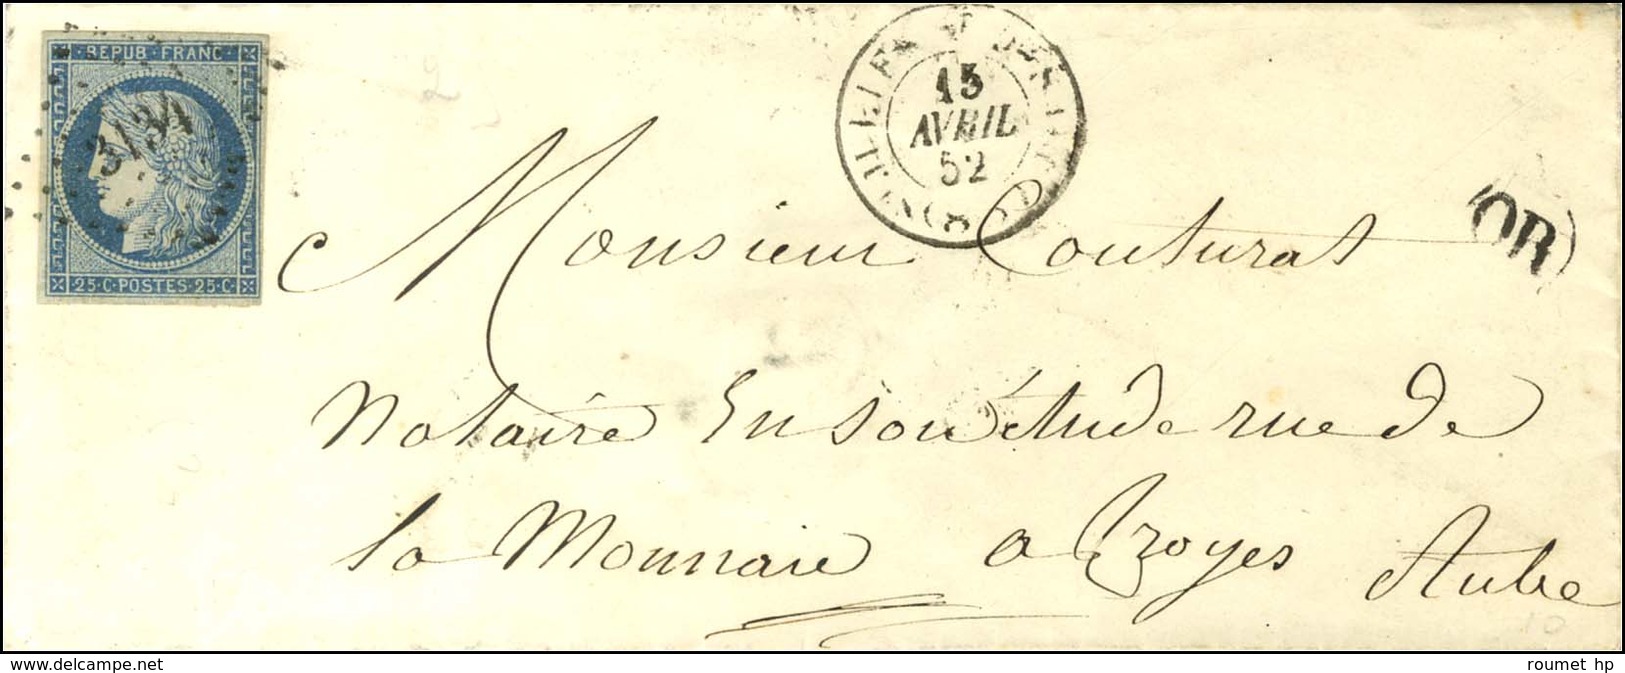 REPUB·FRANC·
3734
25·C·POSTES·25·C·
15
AVRIL
52
(80)
OR
Monsieur Couturat
Notaire En son Etude rue de
la Monnaie a Troyes Aube
10
www.delcampe.net
roumet hp